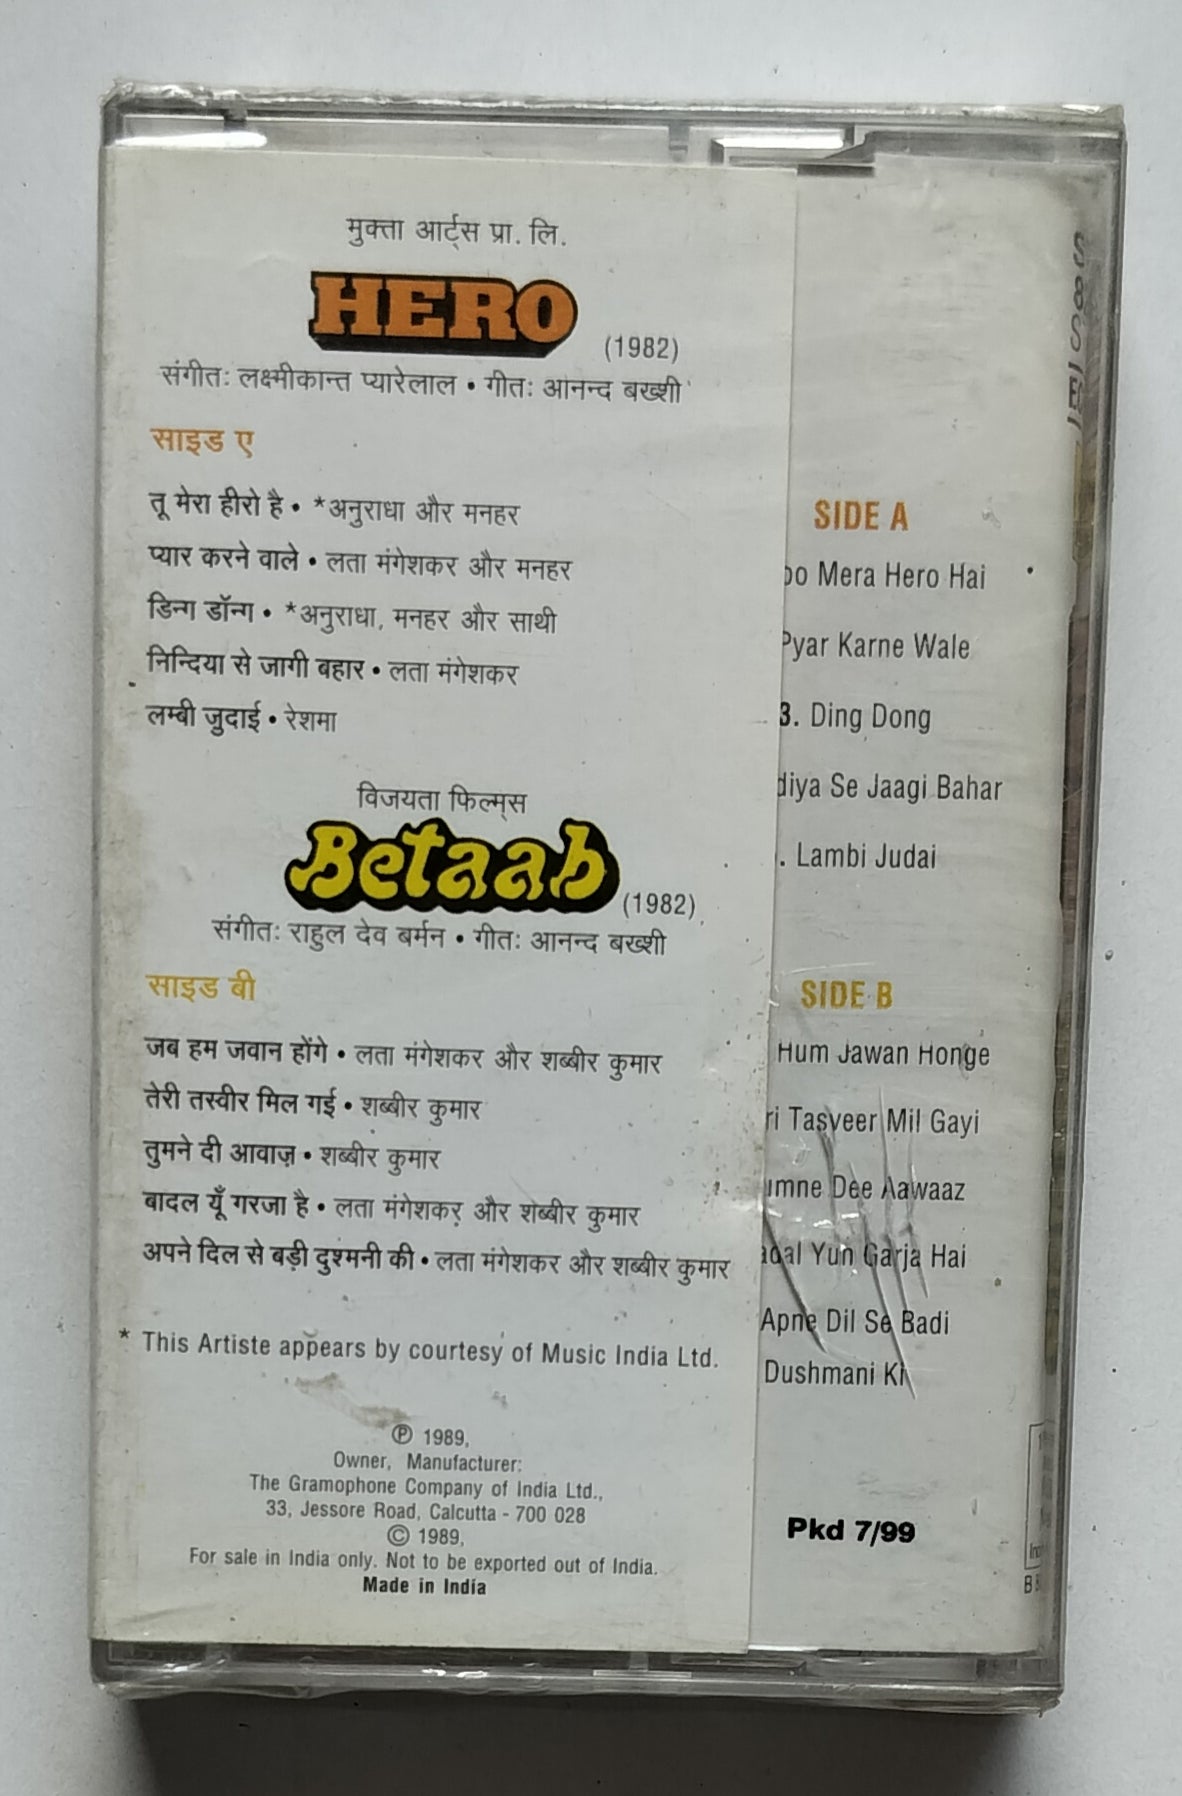 मुक्ता आर्ट्स प्रा. लि.
HERO
(1982)
संगीतः लक्ष्मीकान्त प्यारेलाल • गीतः आनन्द बख्शी
साइड ए
तू मेरा हीरो है • *अनुराधा और मनहर
प्यार करने वाले • लता मंगेशकर और मनहर
डिन्ग डॉन्ग • *अनुराधा, मनहर और साथी
निन्दिया से जागी बहार • लता मंगेशकर
लम्बी जुदाई • रेशमा
विजयता फिल्म्स
Betaab
(1982)
संगीतः राहुल देव बर्मन • गीतः आनन्द बख्शी
साइड बी
जब हम जवान होंगे • लता मंगेशकर और शब्बीर कुमार
तेरी तस्वीर मिल गई • शब्बीर कुमार
तुमने दी आवाज़ • शब्बीर कुमार
बादल यूँ गरजा है • लता मंगेशकर और शब्बीर कुमार
अपने दिल से बड़ी दुश्मनी की • लता मंगेशकर और शब्बीर कुमार
* This Artiste appears by courtesy of Music India Ltd.
℗ 1989,
Owner, Manufacturer:
The Gramophone Company of India Ltd.,
33, Jessore Road, Calcutta - 700 028
© 1989,
For sale in India only. Not to be exported out of India.
Made in India
SIDE A
Mera Hero Hai
Pyar Karne Wale
3. Ding Dong
Se Jaagi Bahar
Lambi Judai
SIDE B
Hum Jawan Honge
Tasveer Mil Gayi
Dee Aawaaz
Yun Garja Hai
Apne Dil Se Badi
Dushmani Ki
Pkd 7/99